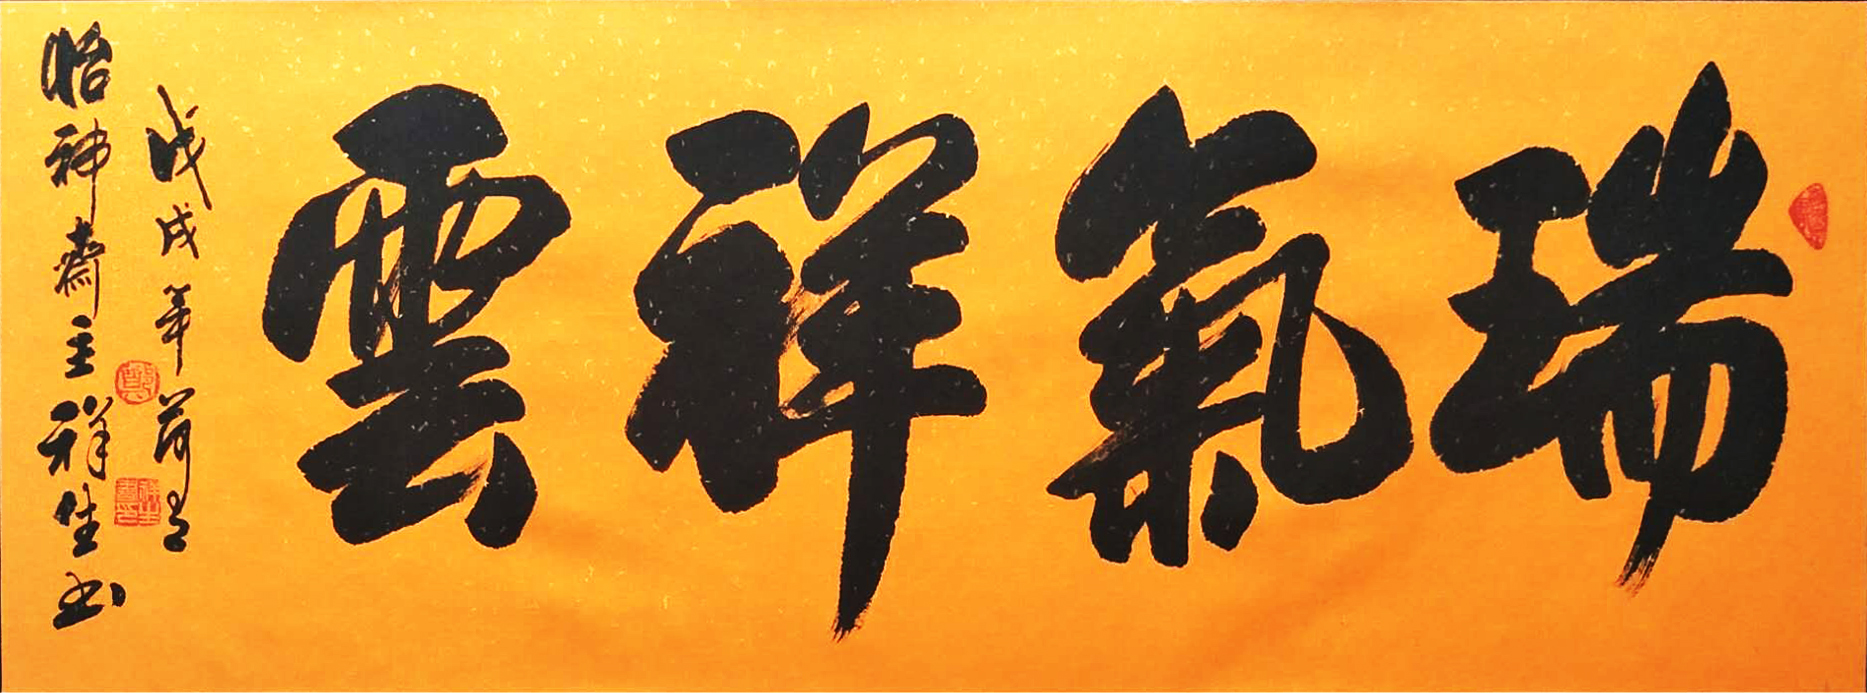 瑞氣祥雲
戊戌年荷月
怡神齋主祥生书
鄭